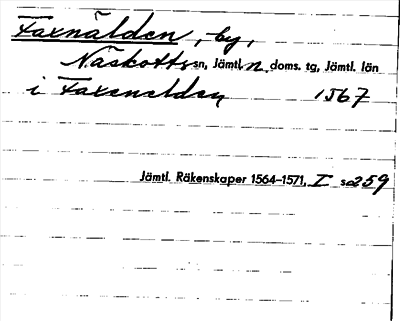 Faxnälden, by,
Näskotts sn, Jämtl. n. doms. tg, Jämtl. län
i Faxenelden 1567
Jämtl. Räkenskaper 1564–1571, I s. 259